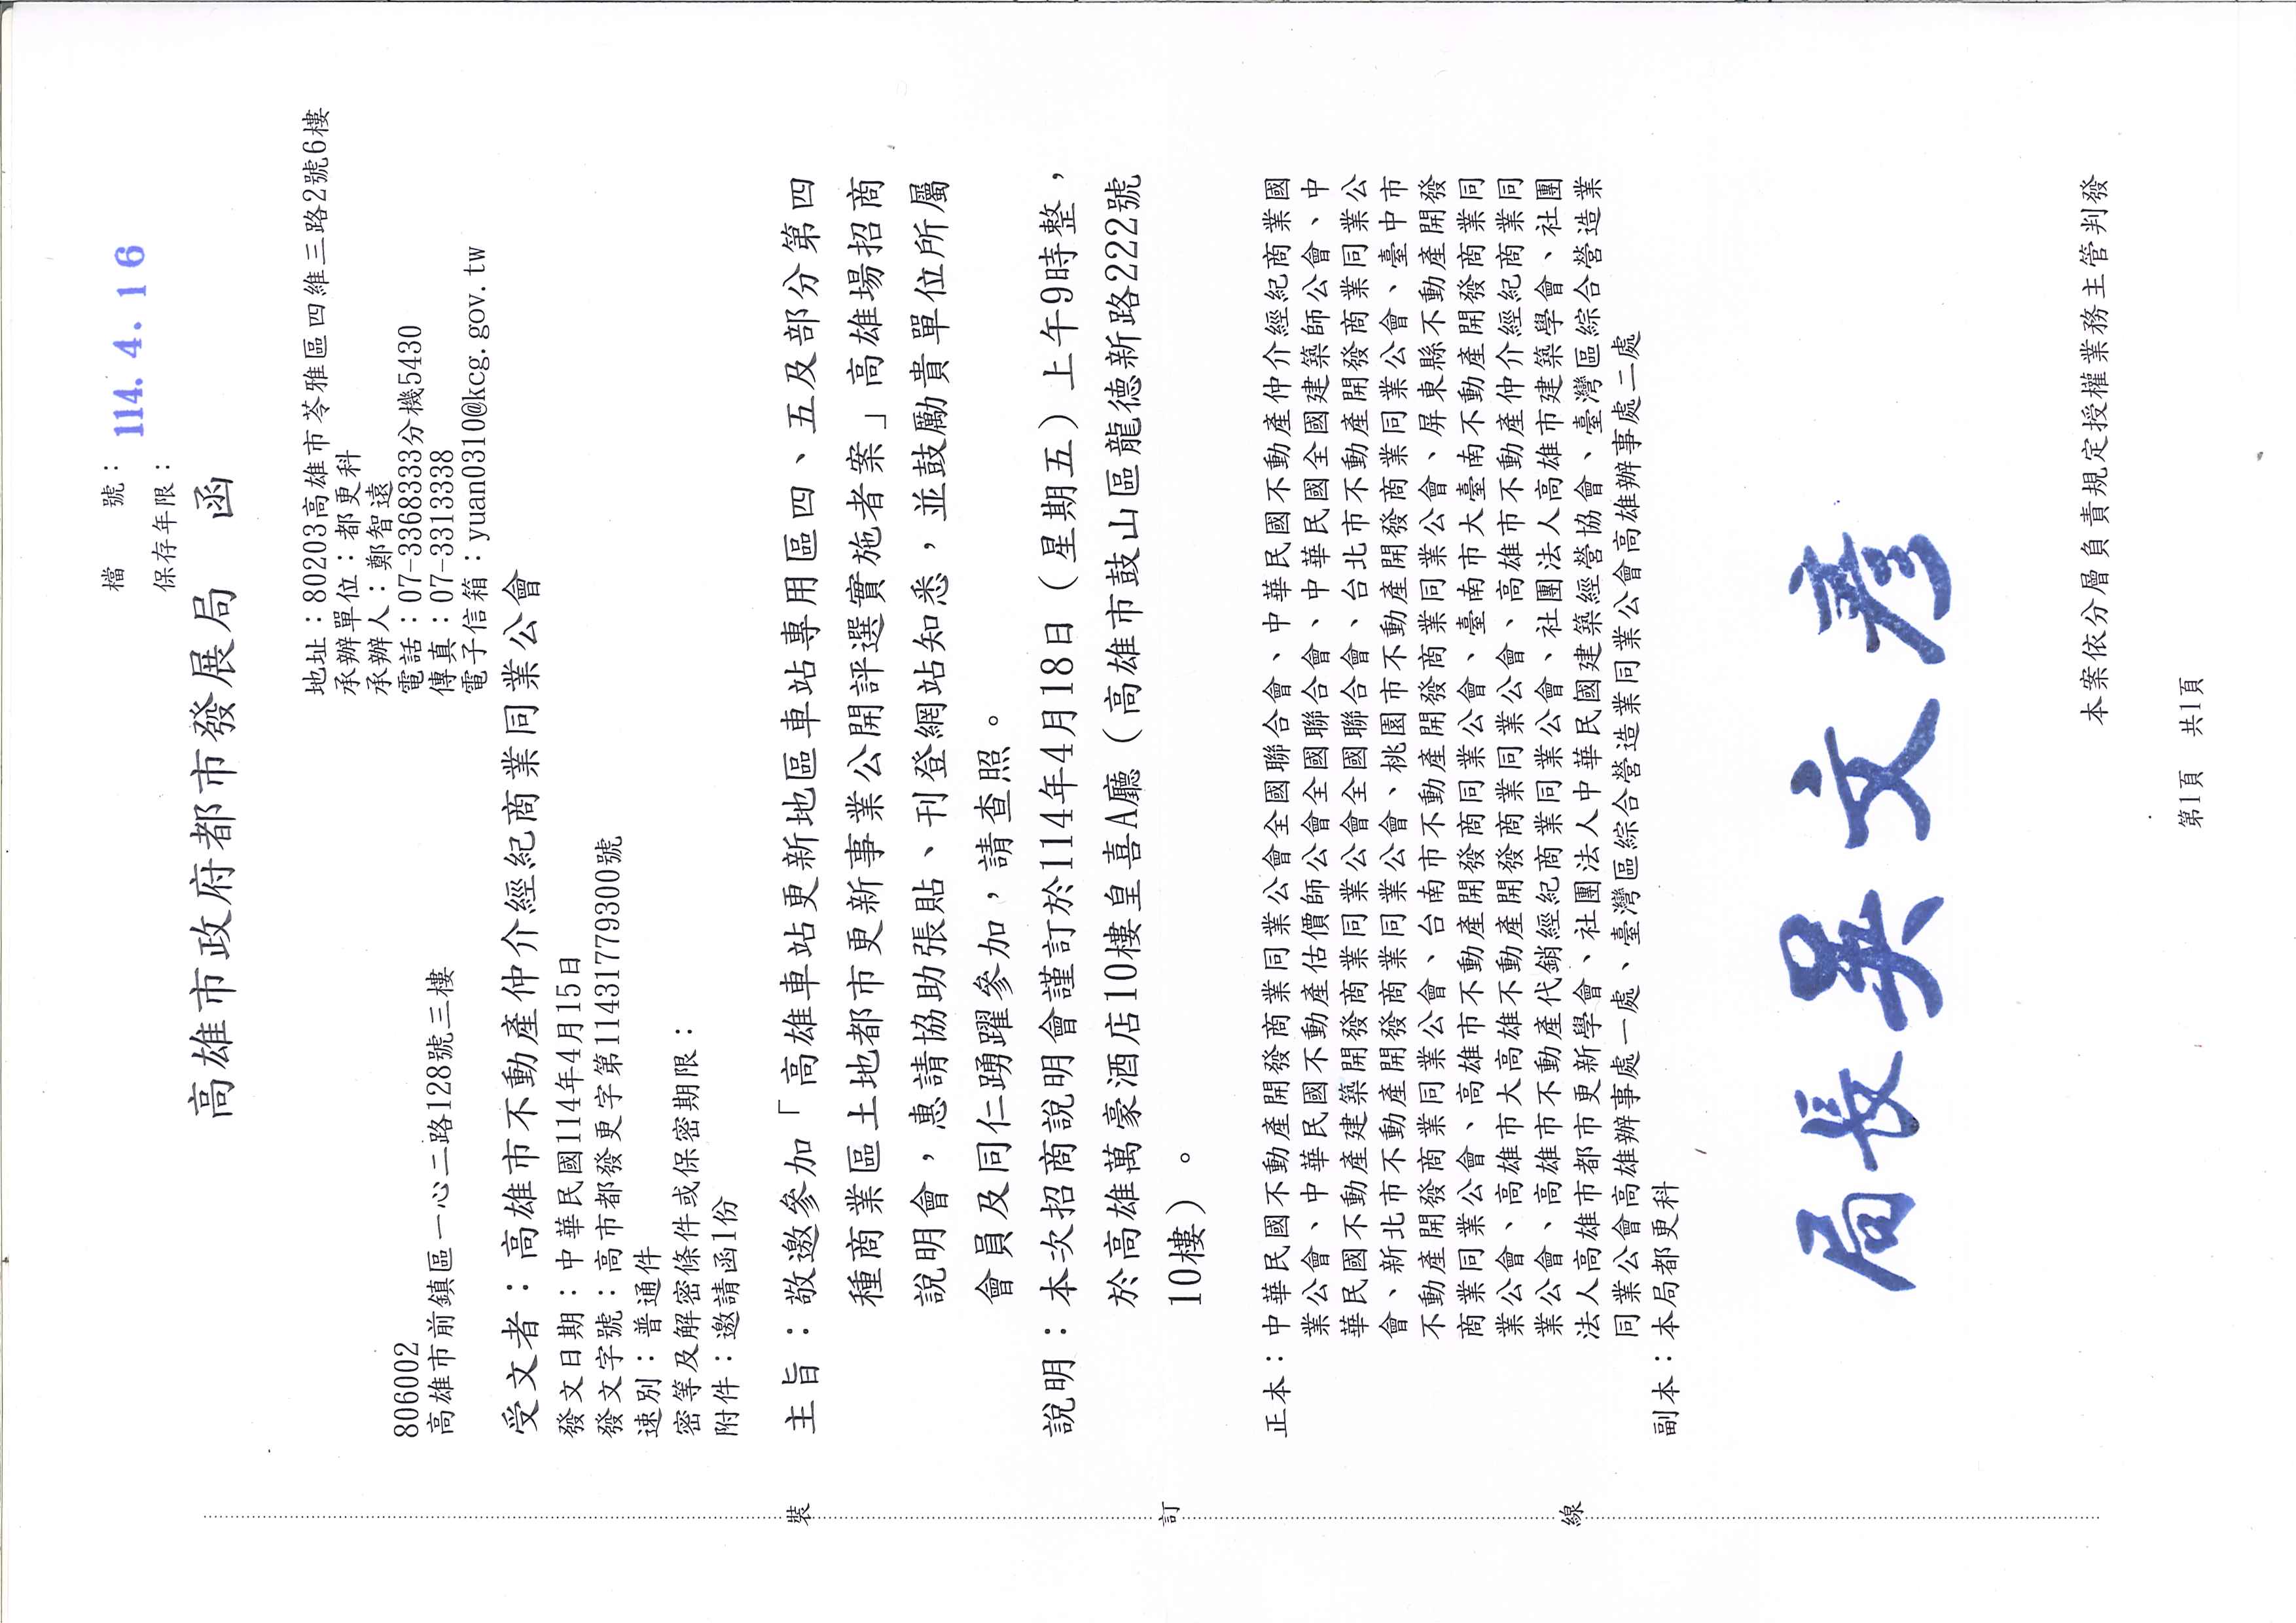 檔　　號：
保存年限：
114. 4. 16
高雄市政府都市發展局　函
地址：80203高雄市苓雅區四維三路2號6樓
承辦單位：都更科
承辦人：鄭智遠
電話：07-3368333分機5430
傳真：07-3313338
電子信箱：yuan0310@kcg.gov.tw
806002
高雄市前鎮區一心二路128號三樓
受文者：高雄市不動產仲介經紀商業同業公會
發文日期：中華民國114年4月15日
發文字號：高市都發更字第11431779300號
速別：普通件
密等及解密條件或保密期限：
附件：邀請函1份
主旨：敬邀參加「高雄車站更新地區車站專用區四、五及部分第四
種商業區土地都市更新事業公開評選實施者案」高雄場招商
說明會，惠請協助張貼、刊登網站知悉，並鼓勵貴單位所屬
會員及同仁踴躍參加，請查照。
說明：本次招商說明會謹訂於114年4月18日（星期五）上午9時整，
於高雄萬豪酒店10樓皇喜A廳（高雄市鼓山區龍德新路222號
10樓）。
正本：中華民國不動產開發商業同業公會全國聯合會、中華民國不動產仲介經紀商業國
業公會、中華民國不動產估價師公會全國聯合會、中華民國全國建築師公會、中
華民國不動產建築開發商業同業公會全國聯合會、台北市不動產開發商業同業公
會、新北市不動產開發商業同業公會、桃園市不動產開發商業同業公會、臺中市
不動產開發商業同業公會、台南市不動產開發商業同業公會、屏東縣不動產開發
商業同業公會、高雄市不動產開發商業同業公會、臺南市大臺南不動產開發商業同
業公會、高雄市大高雄不動產開發商業同業公會、高雄市不動產仲介經紀商業同
業公會、高雄市不動產代銷經紀商業同業公會、社團法人高雄市建築學會、社團
法人高雄市都市更新學會、社團法人中華民國建築經營協會、臺灣區綜合營造業
同業公會高雄辦事處一處、臺灣區綜合營造業同業公會高雄辦事處二處
副本：本局都更科
局長吳文彥
本案依分層負責規定授權業務主管判發
第1頁　共1頁
裝
訂
線